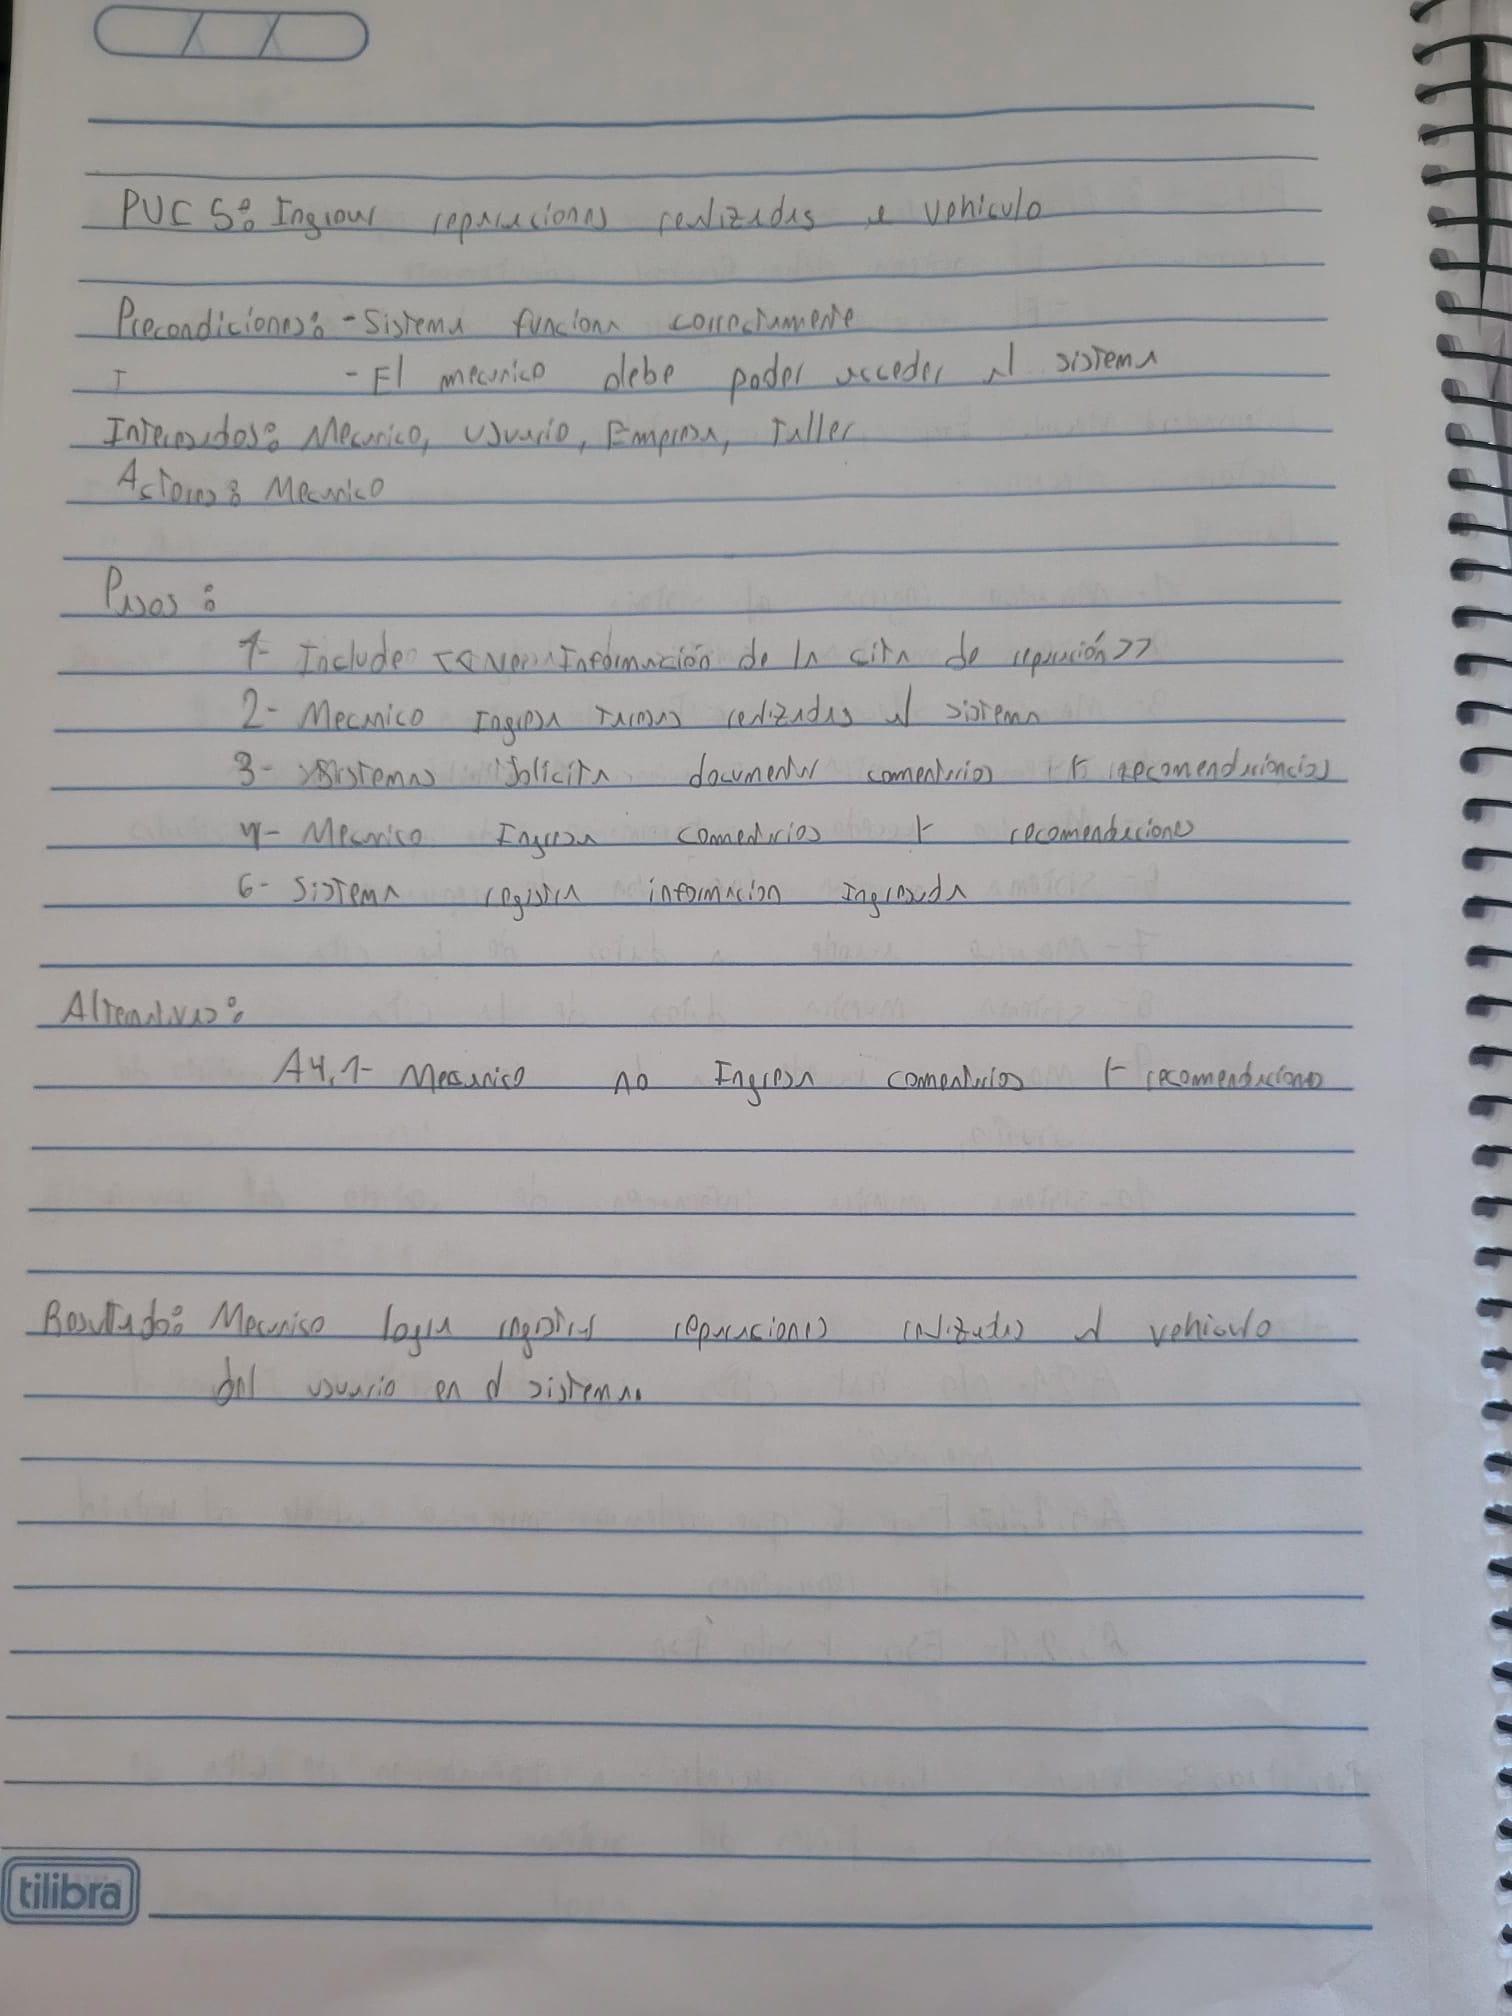 PUC 5: Ingresar reparaciones realizadas a vehiculo
Precondiciones: - Sistema funciona correctamente
- El mecanico debe poder acceder al sistema
Interesados: Mecanico, Usuario, Empresa, Taller
Actores: Mecanico
Pasos:
1- Include << Ver Información de la cita de reparación >>
2- Mecanico Ingresa tareas realizadas al sistema
3- Sistema solicita documentar comentarios + recomendaciones
4- Mecanico Ingresa comentarios + recomendaciones
6- Sistema registra informacion Ingresada
Alternativas:
A4.1- Mecanico no Ingresa comentarios + recomendaciones
Resultado: Mecanico logra registrar reparaciones realizadas al vehiculo
del usuario en el sistema.
tilibra